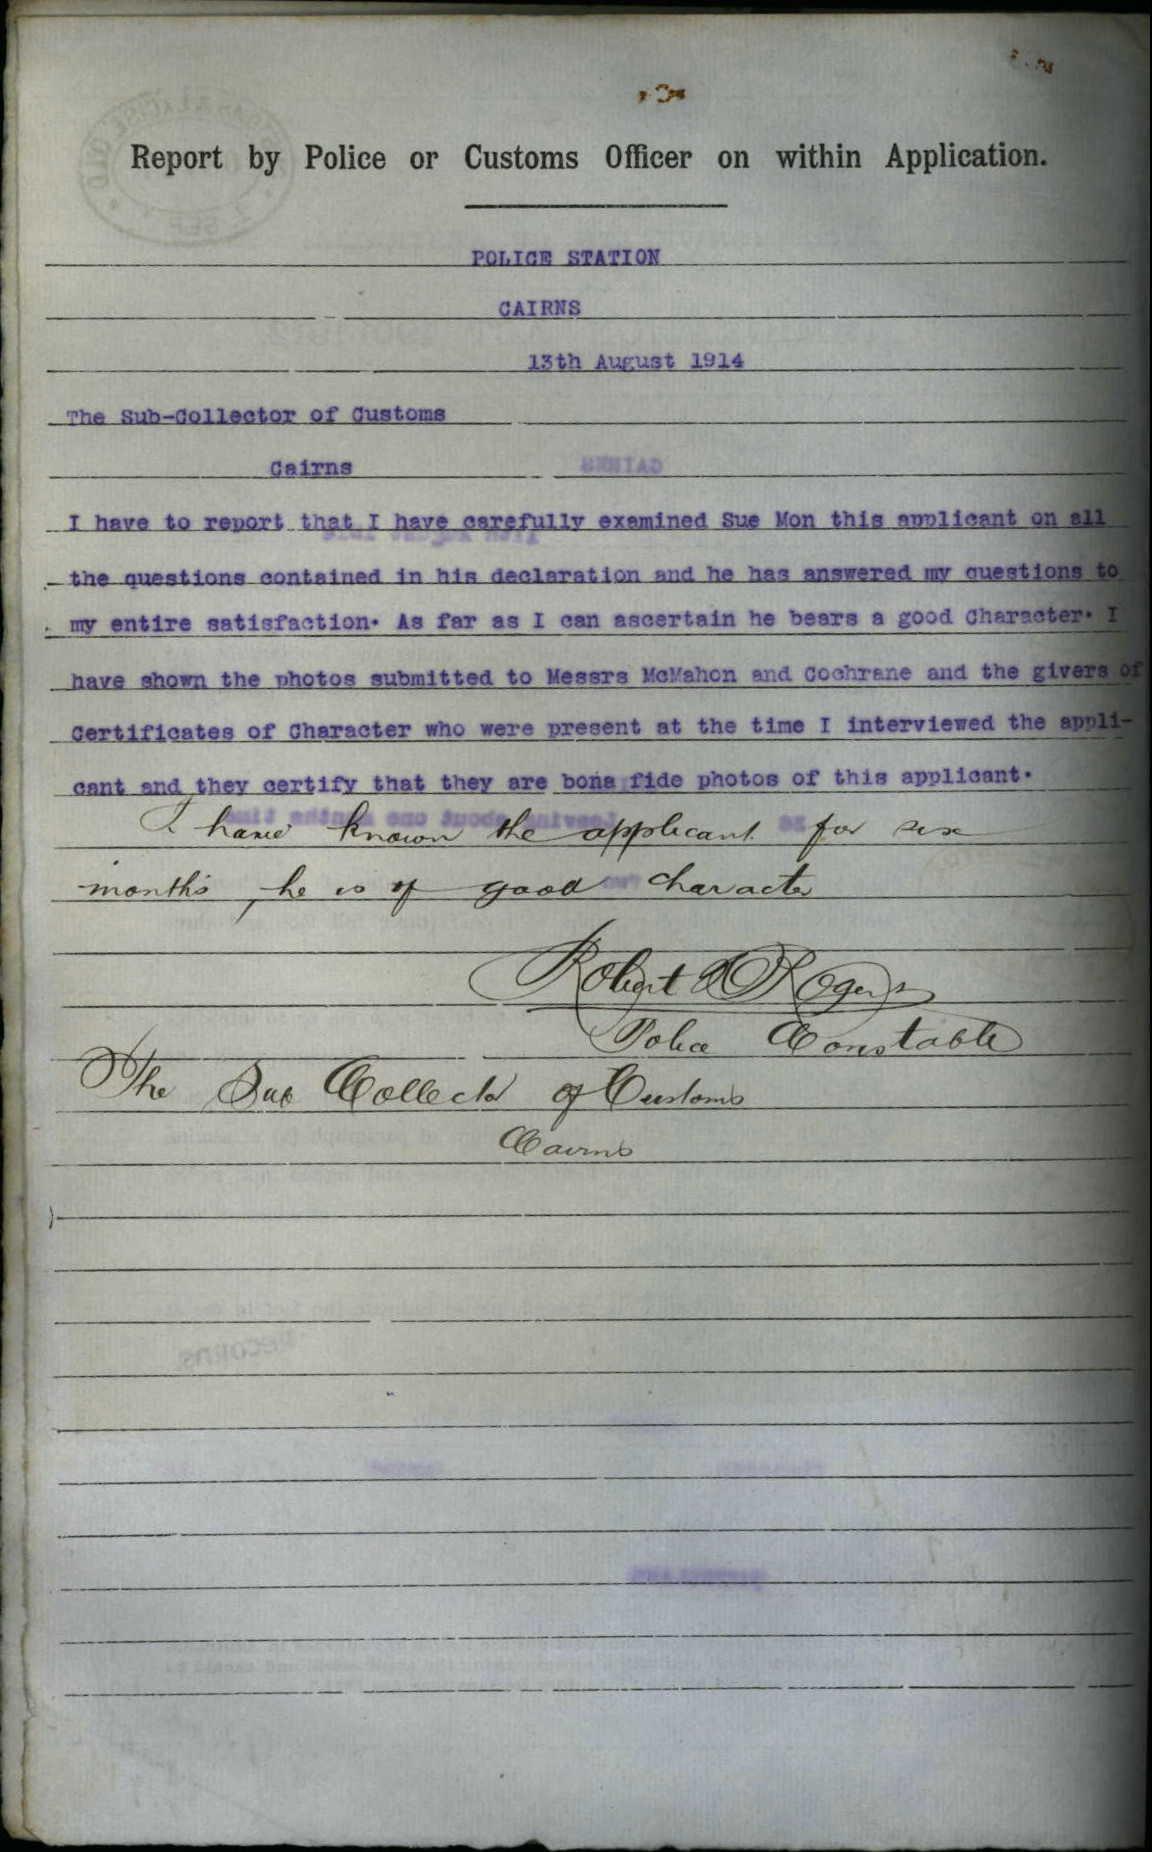 Report by Police or Customs Officer on within Application.
POLICE STATION
CAIRNS
13th August 1914
The Sub-Collector of Customs
Cairns
I have to report that I have carefully examined Sue Mon this applicant on all
the questions contained in his declaration and he has answered my questions to
my entire satisfaction. As far as I can ascertain he bears a good Character. I
have shown the photos submitted to Messrs McMahon and Cochrane and the givers of
Certificates of Character who were present at the time I interviewed the appli-
cant and they certify that they are bona fide photos of this applicant.
I have known the applicant for six
months, he is of good character
Robert Rogers
Police Constable
The Sub Collector of Customs
Cairns